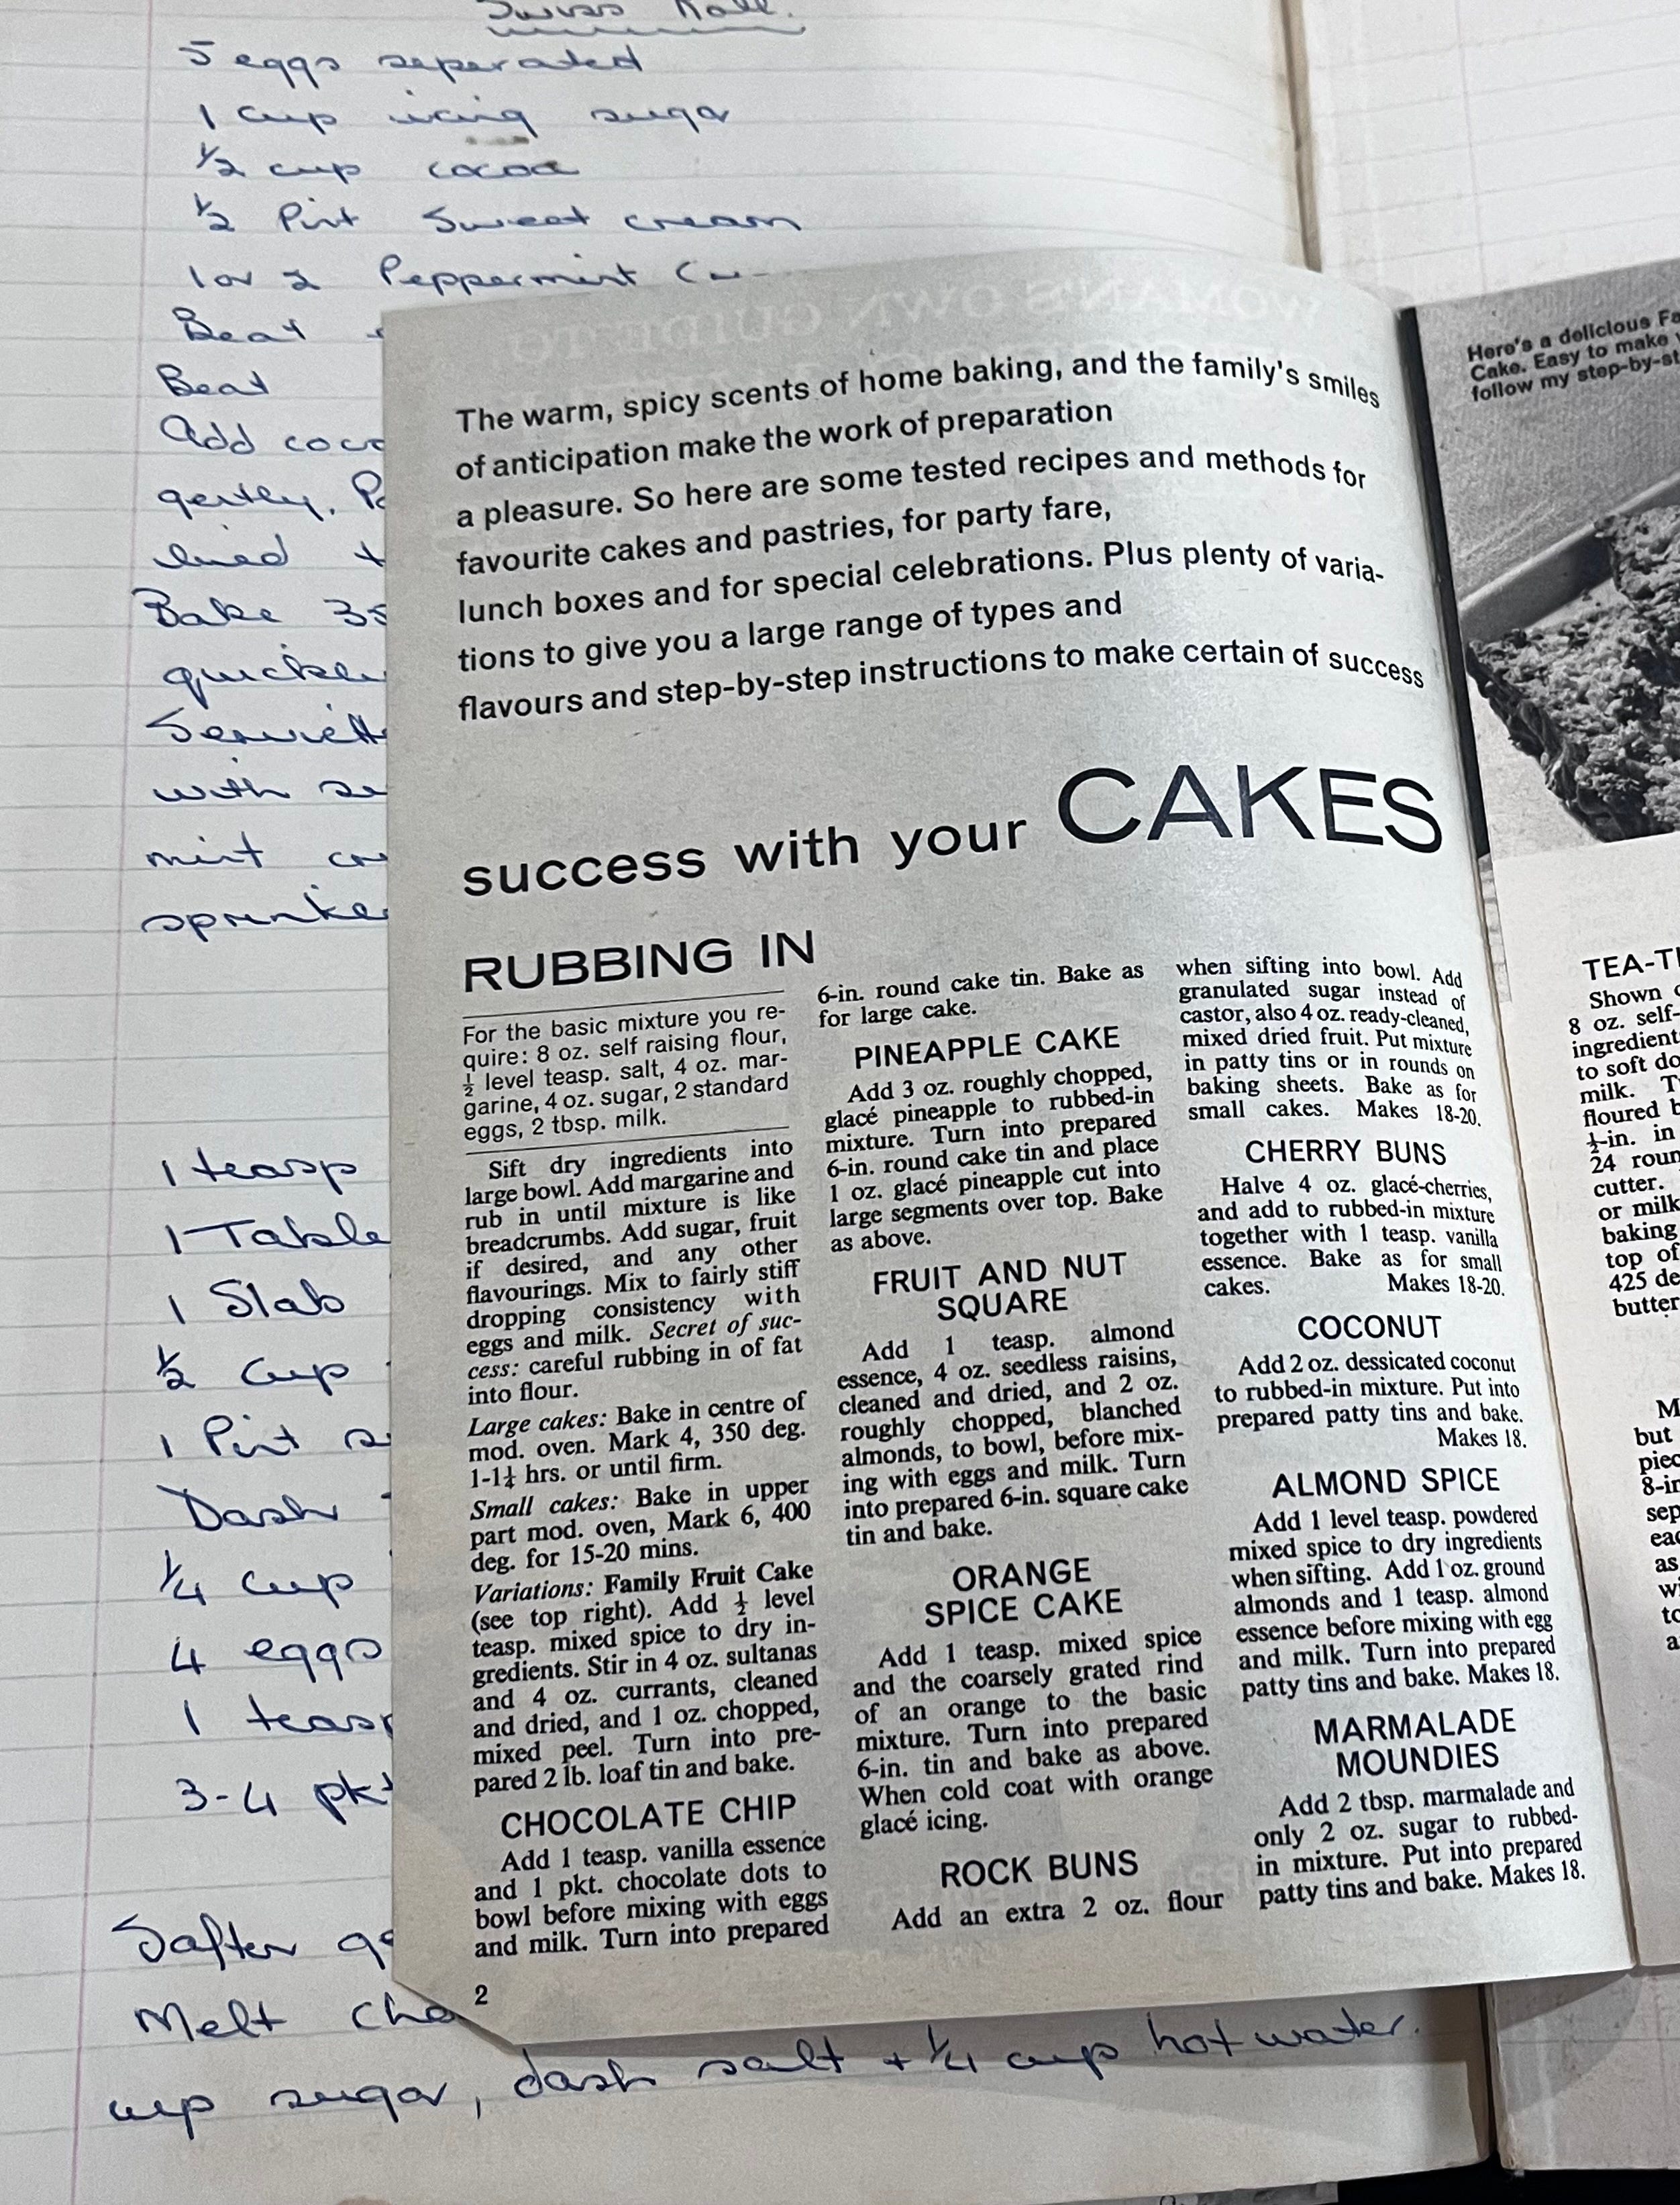 Swiss Roll.
5 eggs seperated
1 cup icing sugar
1/2 cup cocoa
1/2 Pint Sweet cream
1 or 2 Peppermint
Beat
Beat
Add
gently.
lined
Bake
with
mint
1 teasp
1 Table
1 Slab
1/2 cup
1 Pint
Dash
1/4 cup
4 eggs
1
3-4
Melt
cup sugar, dash salt + 1/4 cup hot water.
WOMAN'S OWN GUIDE TO
The warm, spicy scents of home baking, and the family's smiles
of anticipation make the work of preparation
a pleasure. So here are some tested recipes and methods for
favourite cakes and pastries, for party fare,
lunch boxes and for special celebrations. Plus plenty of varia-
tions to give you a large range of types and
flavours and step-by-step instructions to make certain of success
success with your CAKES
RUBBING IN
For the basic mixture you re-
quire: 8 oz. self raising flour,
½ level teasp. salt, 4 oz. mar-
garine, 4 oz. sugar, 2 standard
eggs, 2 tbsp. milk.
Sift dry ingredients into
large bowl. Add margarine and
rub in until mixture is like
breadcrumbs. Add sugar, fruit
if desired, and any other
flavourings. Mix to fairly stiff
dropping consistency with
eggs and milk. Secret of suc-
cess: careful rubbing in of fat
into flour.
Large cakes: Bake in centre of
mod. oven. Mark 4, 350 deg.
1-1¼ hrs. or until firm.
Small cakes: Bake in upper
part mod. oven, Mark 6, 400
deg. for 15-20 mins.
Variations: Family Fruit Cake
(see top right). Add ½ level
teasp. mixed spice to dry in-
gredients. Stir in 4 oz. sultanas
and 4 oz. currants, cleaned
and dried, and 1 oz. chopped,
mixed peel. Turn into pre-
pared 2 lb. loaf tin and bake.
CHOCOLATE CHIP
Add 1 teasp. vanilla essence
and 1 pkt. chocolate dots to
bowl before mixing with eggs
and milk. Turn into prepared
2
6-in. round cake tin. Bake as
for large cake.
PINEAPPLE CAKE
Add 3 oz. roughly chopped,
glacé pineapple to rubbed-in
mixture. Turn into prepared
6-in. round cake tin and place
1 oz. glacé pineapple cut into
large segments over top. Bake
as above.
FRUIT AND NUT
SQUARE
Add 1 teasp. almond
essence, 4 oz. seedless raisins,
cleaned and dried, and 2 oz.
roughly chopped, blanched
almonds, to bowl, before mix-
ing with eggs and milk. Turn
into prepared 6-in. square cake
tin and bake.
ORANGE
SPICE CAKE
Add 1 teasp. mixed spice
and the coarsely grated rind
of an orange to the basic
mixture. Turn into prepared
6-in. tin and bake as above.
When cold coat with orange
glacé icing.
ROCK BUNS
Add an extra 2 oz. flour
when sifting into bowl. Add
granulated sugar instead of
castor, also 4 oz. ready-cleaned,
mixed dried fruit. Put mixture
in patty tins or in rounds on
baking sheets. Bake as for
small cakes. Makes 18-20.
CHERRY BUNS
Halve 4 oz. glacé-cherries,
and add to rubbed-in mixture
together with 1 teasp. vanilla
essence. Bake as for small
cakes. Makes 18-20.
COCONUT
Add 2 oz. dessicated coconut
to rubbed-in mixture. Put into
prepared patty tins and bake.
Makes 18.
ALMOND SPICE
Add 1 level teasp. powdered
mixed spice to dry ingredients
when sifting. Add 1 oz. ground
almonds and 1 teasp. almond
essence before mixing with egg
and milk. Turn into prepared
patty tins and bake. Makes 18.
MARMALADE
MOUNDIES
Add 2 tbsp. marmalade and
only 2 oz. sugar to rubbed-
in mixture. Put into prepared
patty tins and bake. Makes 18.
Here's a delicious
Cake. Easy to make
follow my
Shown
8 oz. self-
to soft
milk.
floured
½-in. in
24
cutter.
or milk
baking
top of
425
butter
but